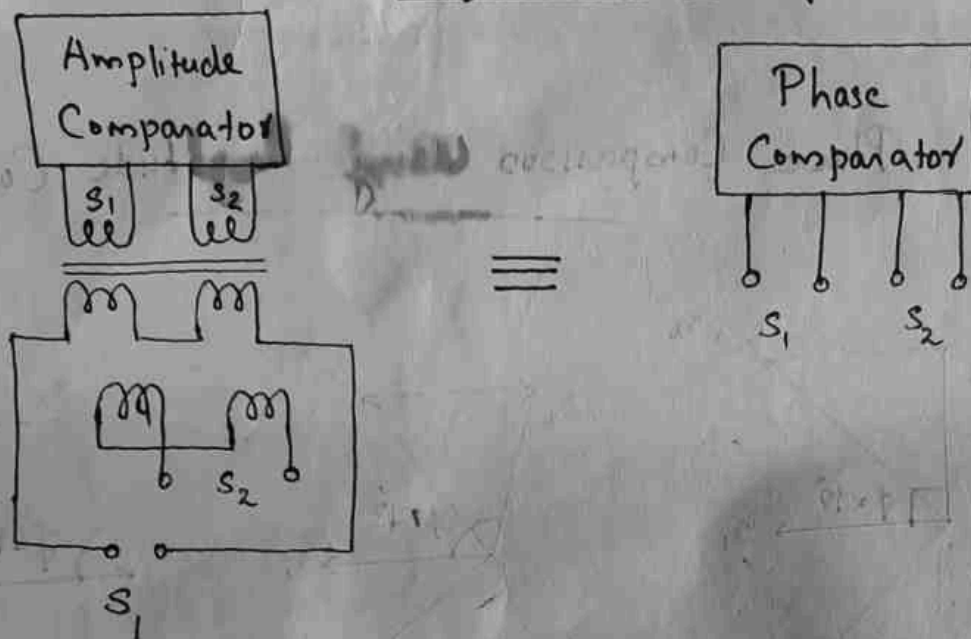 Amplitude
Comparator
S1 S2
S2
S1
Phase
Comparator
S1 S2